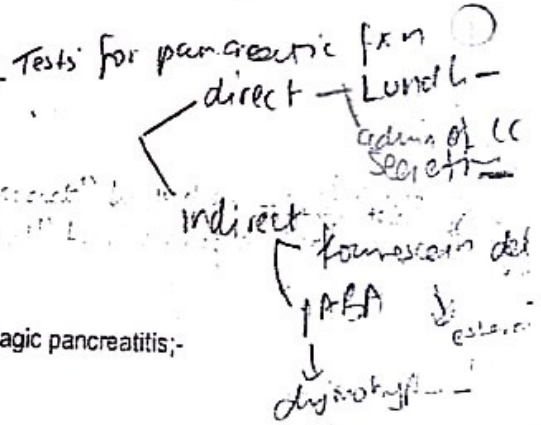 Tests for pancreatic fxn
direct — Lundh —
admin of CC
Secreti
indirect
flourescein del
PABA
ester
chymotryp
agic pancreatitis;-